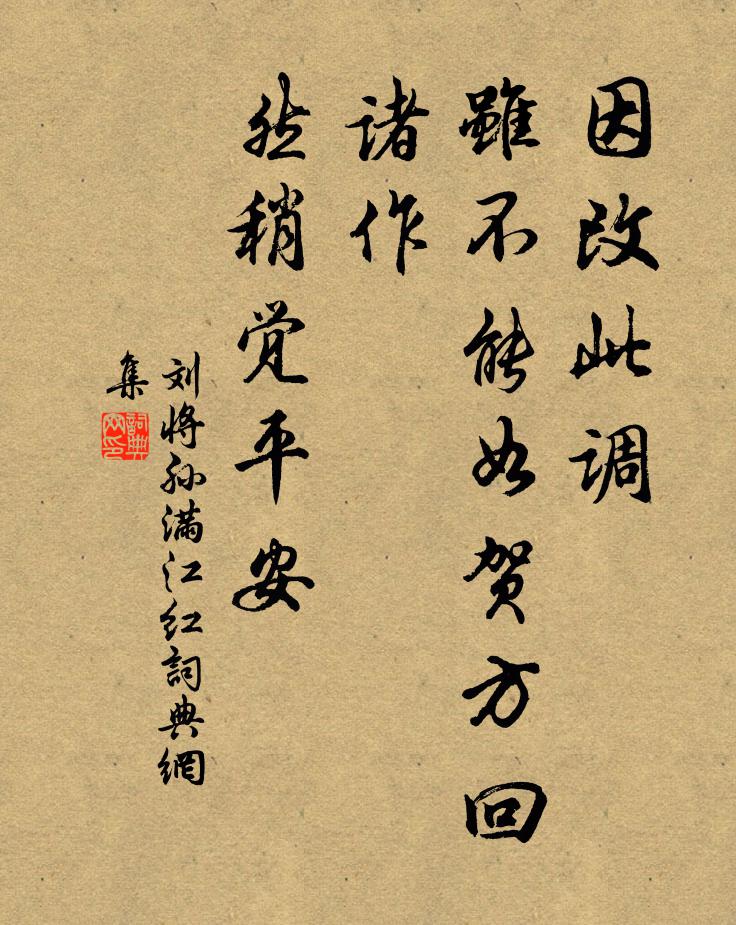 因改此调
雖不能如贺方回
诸作
然稍觉平安
刘将孙满江红詞典網
集
詞典
网印